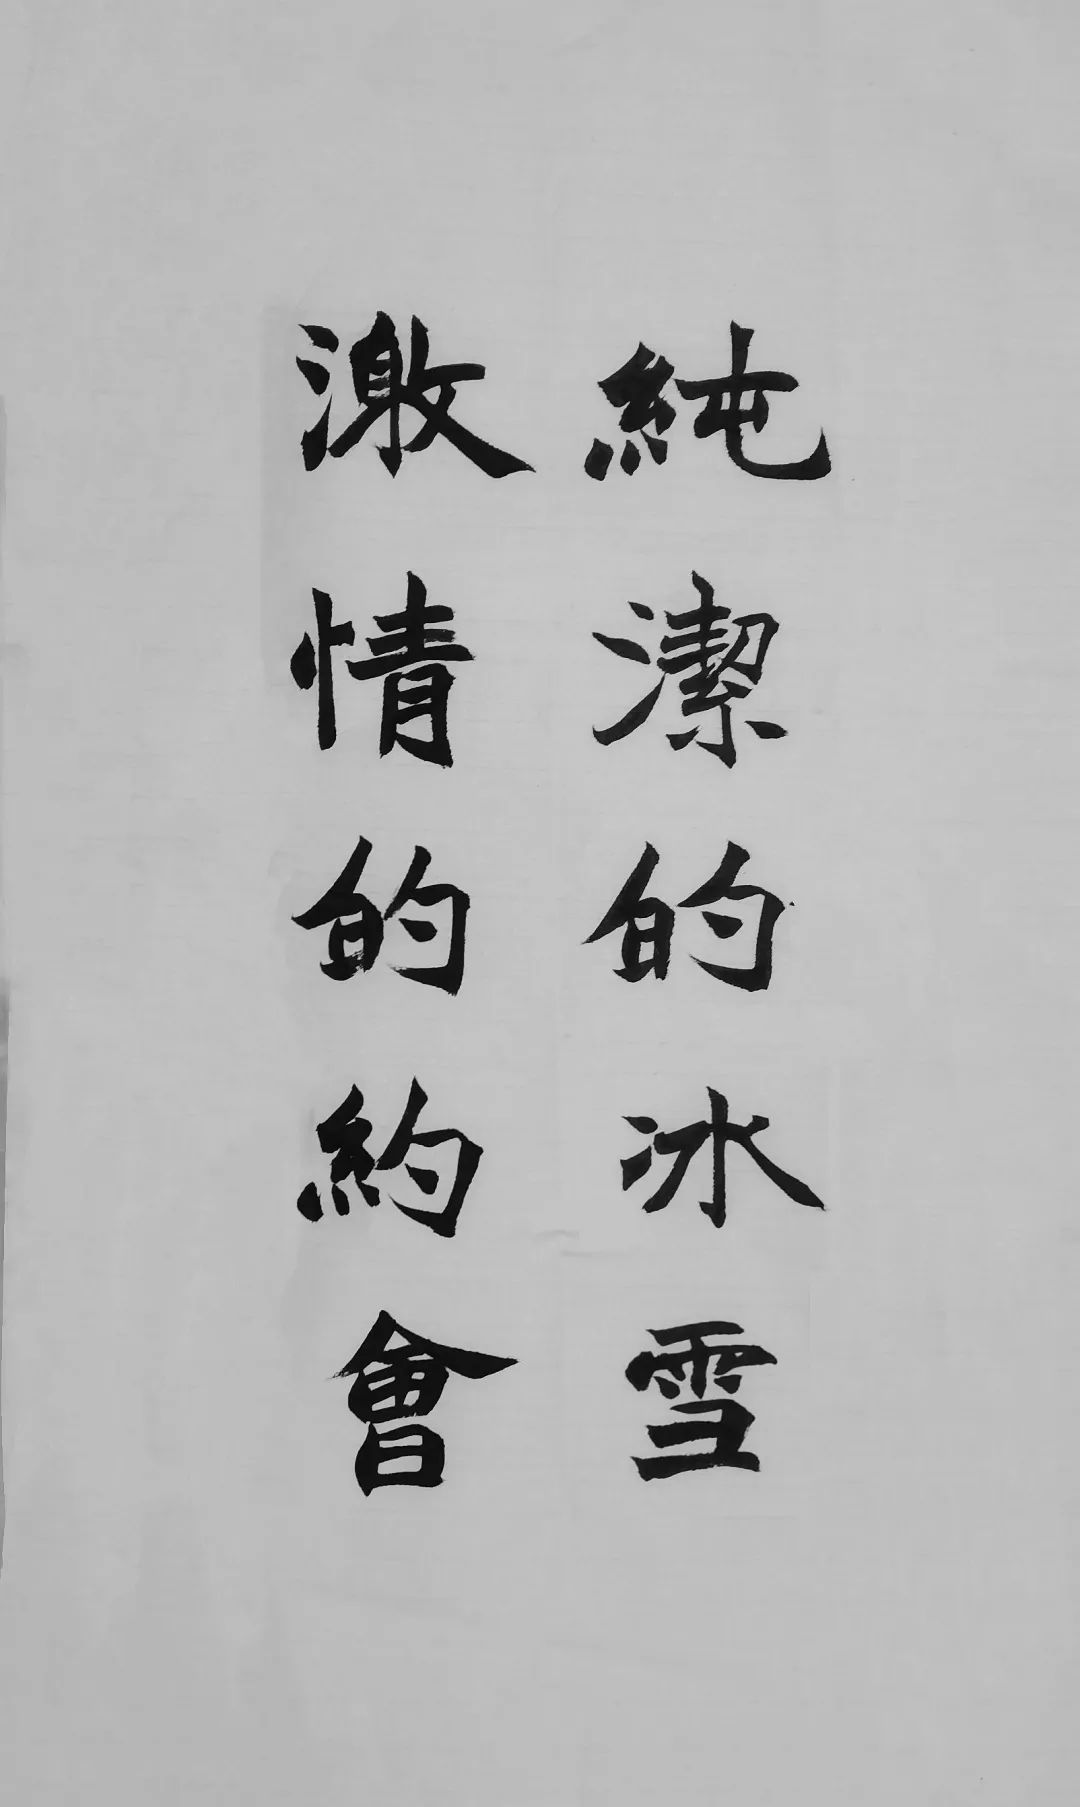 純潔的冰雪
激情的約會